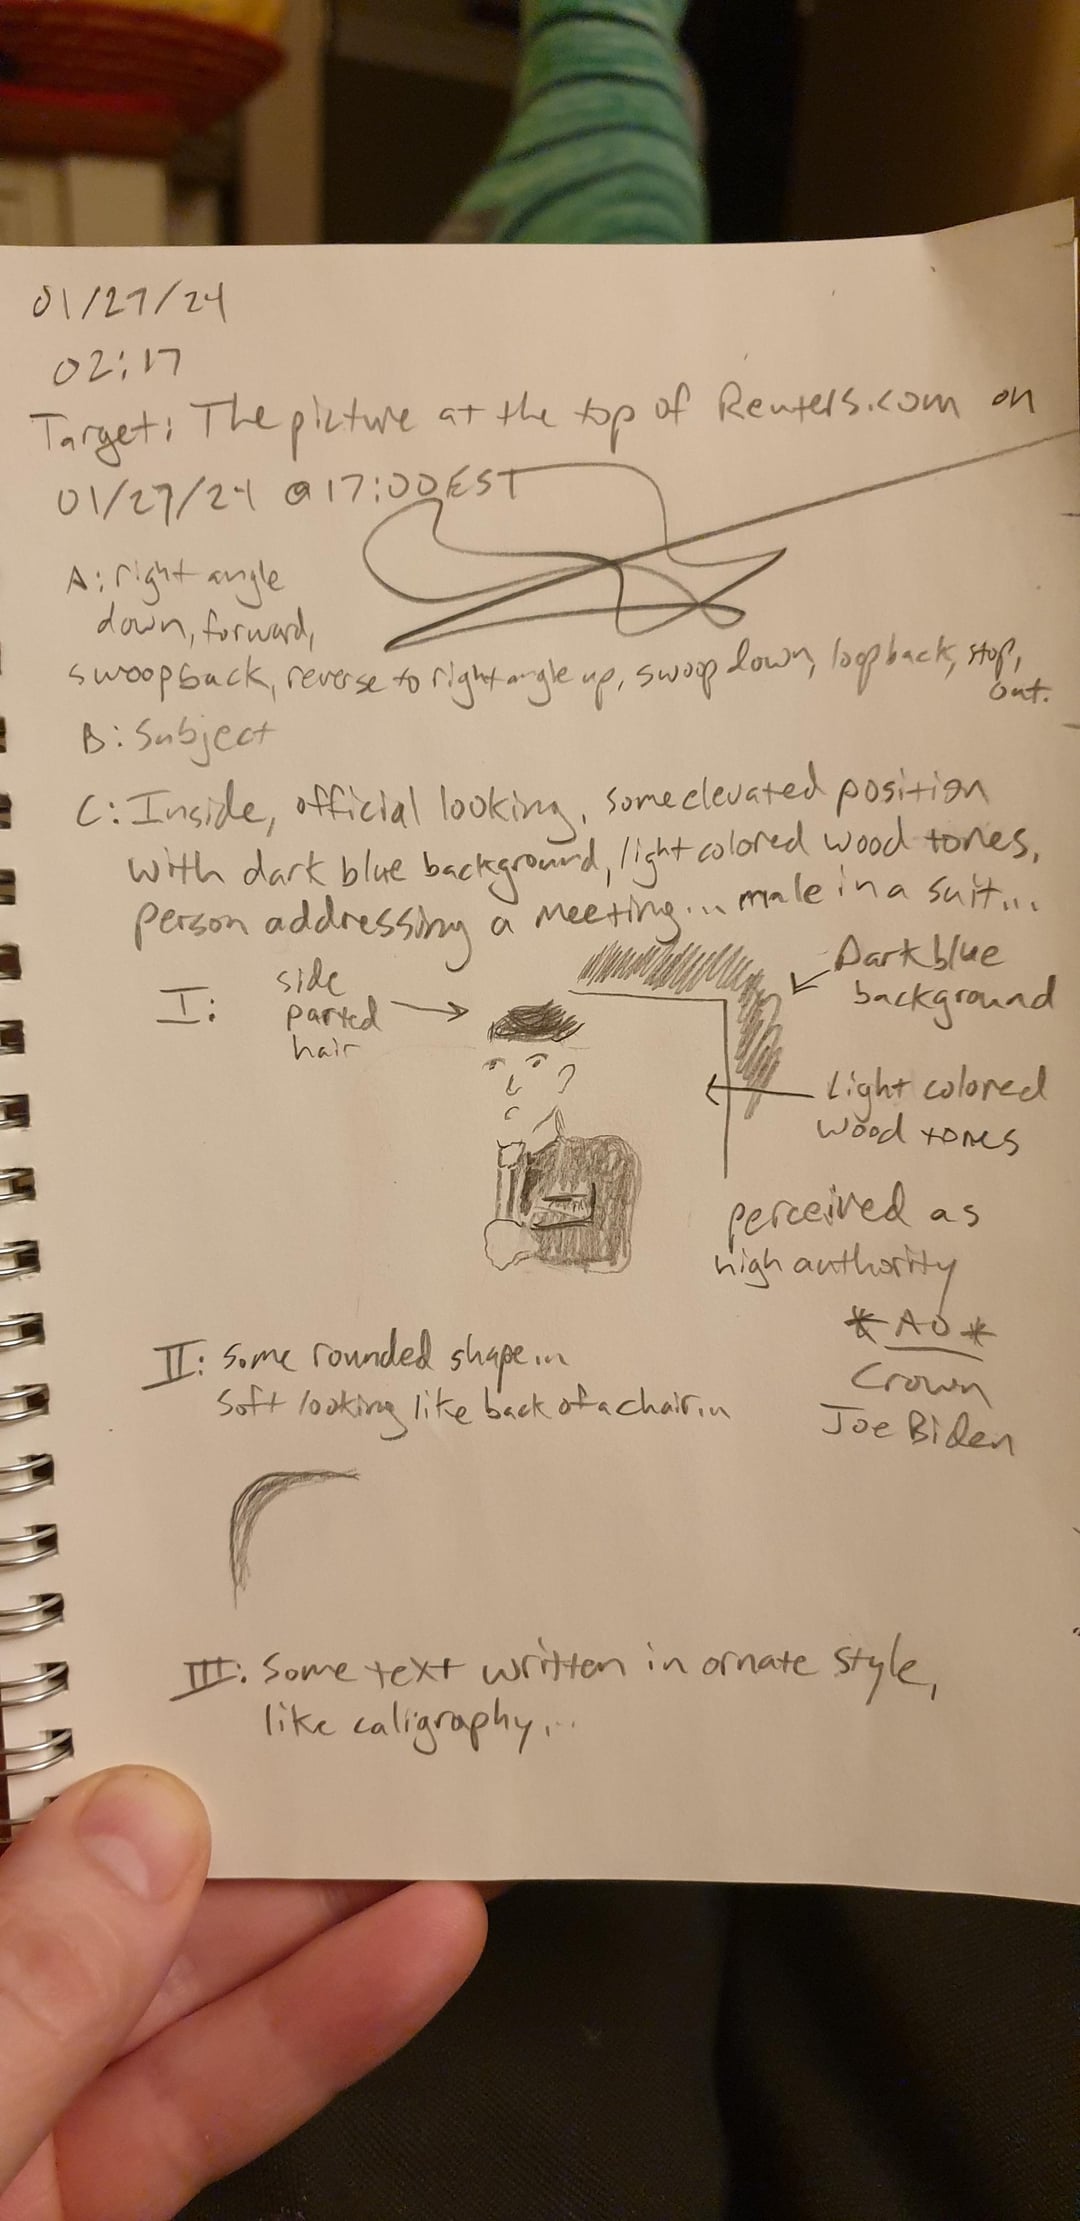 01/27/24
02:17
Target: The picture at the top of Reuters.com on
01/27/24 @ 17:00 EST
A: right angle
down, forward,
swoop back, reverse to right angle up, swoop down, loop back, stop,
out.
B: Subject
C: Inside, official looking, some elevated position
with dark blue background, light colored wood tones,
person addressing a meeting... male in a suit...
I:
side
parted
hair
Dark blue
background
Light colored
wood tones
perceived as
high authority
*AO*
Crown
Joe Biden
II: some rounded shape...
soft looking like back of a chair...
III: Some text written in ornate style,
like caligraphy...